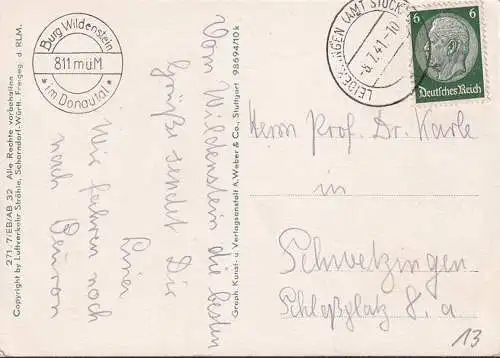 Burg Wildenstein
811 müM
* im Donautal *
LEIDERINGEN (AMT STOCK
-8.7.41.-10
6 6
Deutsches Reich
271-7/EB/AB 32 Alle Rechte vorbehalten
Copyright by Luftverkehr Strähle, Schorndorf-Württ. Freigeg. d. RLM.
Vom Wildenstein die besten
Grüße sendet Dir
Wir fahren noch
nach Beuron
Graph. Kunst- u. Verlagsanstalt A. Weber & Co., Stuttgart 98694/10k
Herrn Prof. Dr. Karle
in
Schwetzingen
Schloßplatz 8. a
13